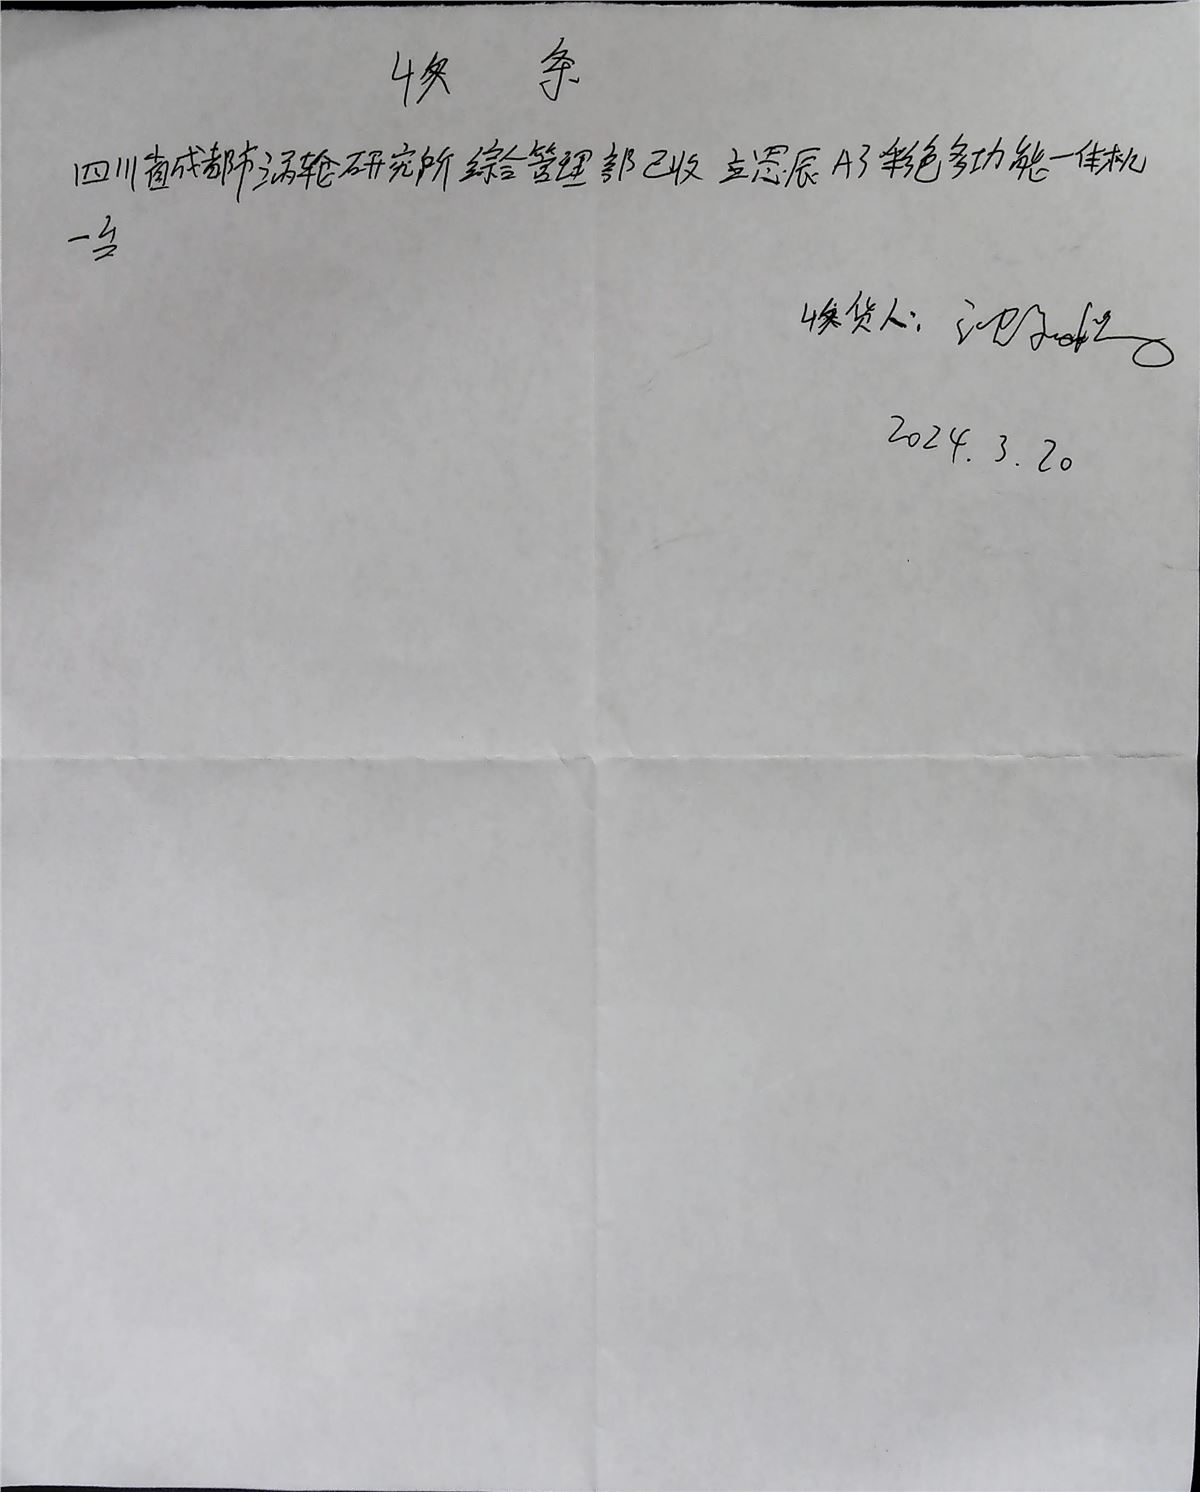 收 条
四川省成都市涡轮研究所综合管理部已收立思辰A3彩色多功能一体机
一台
收货人：
2024.3.20